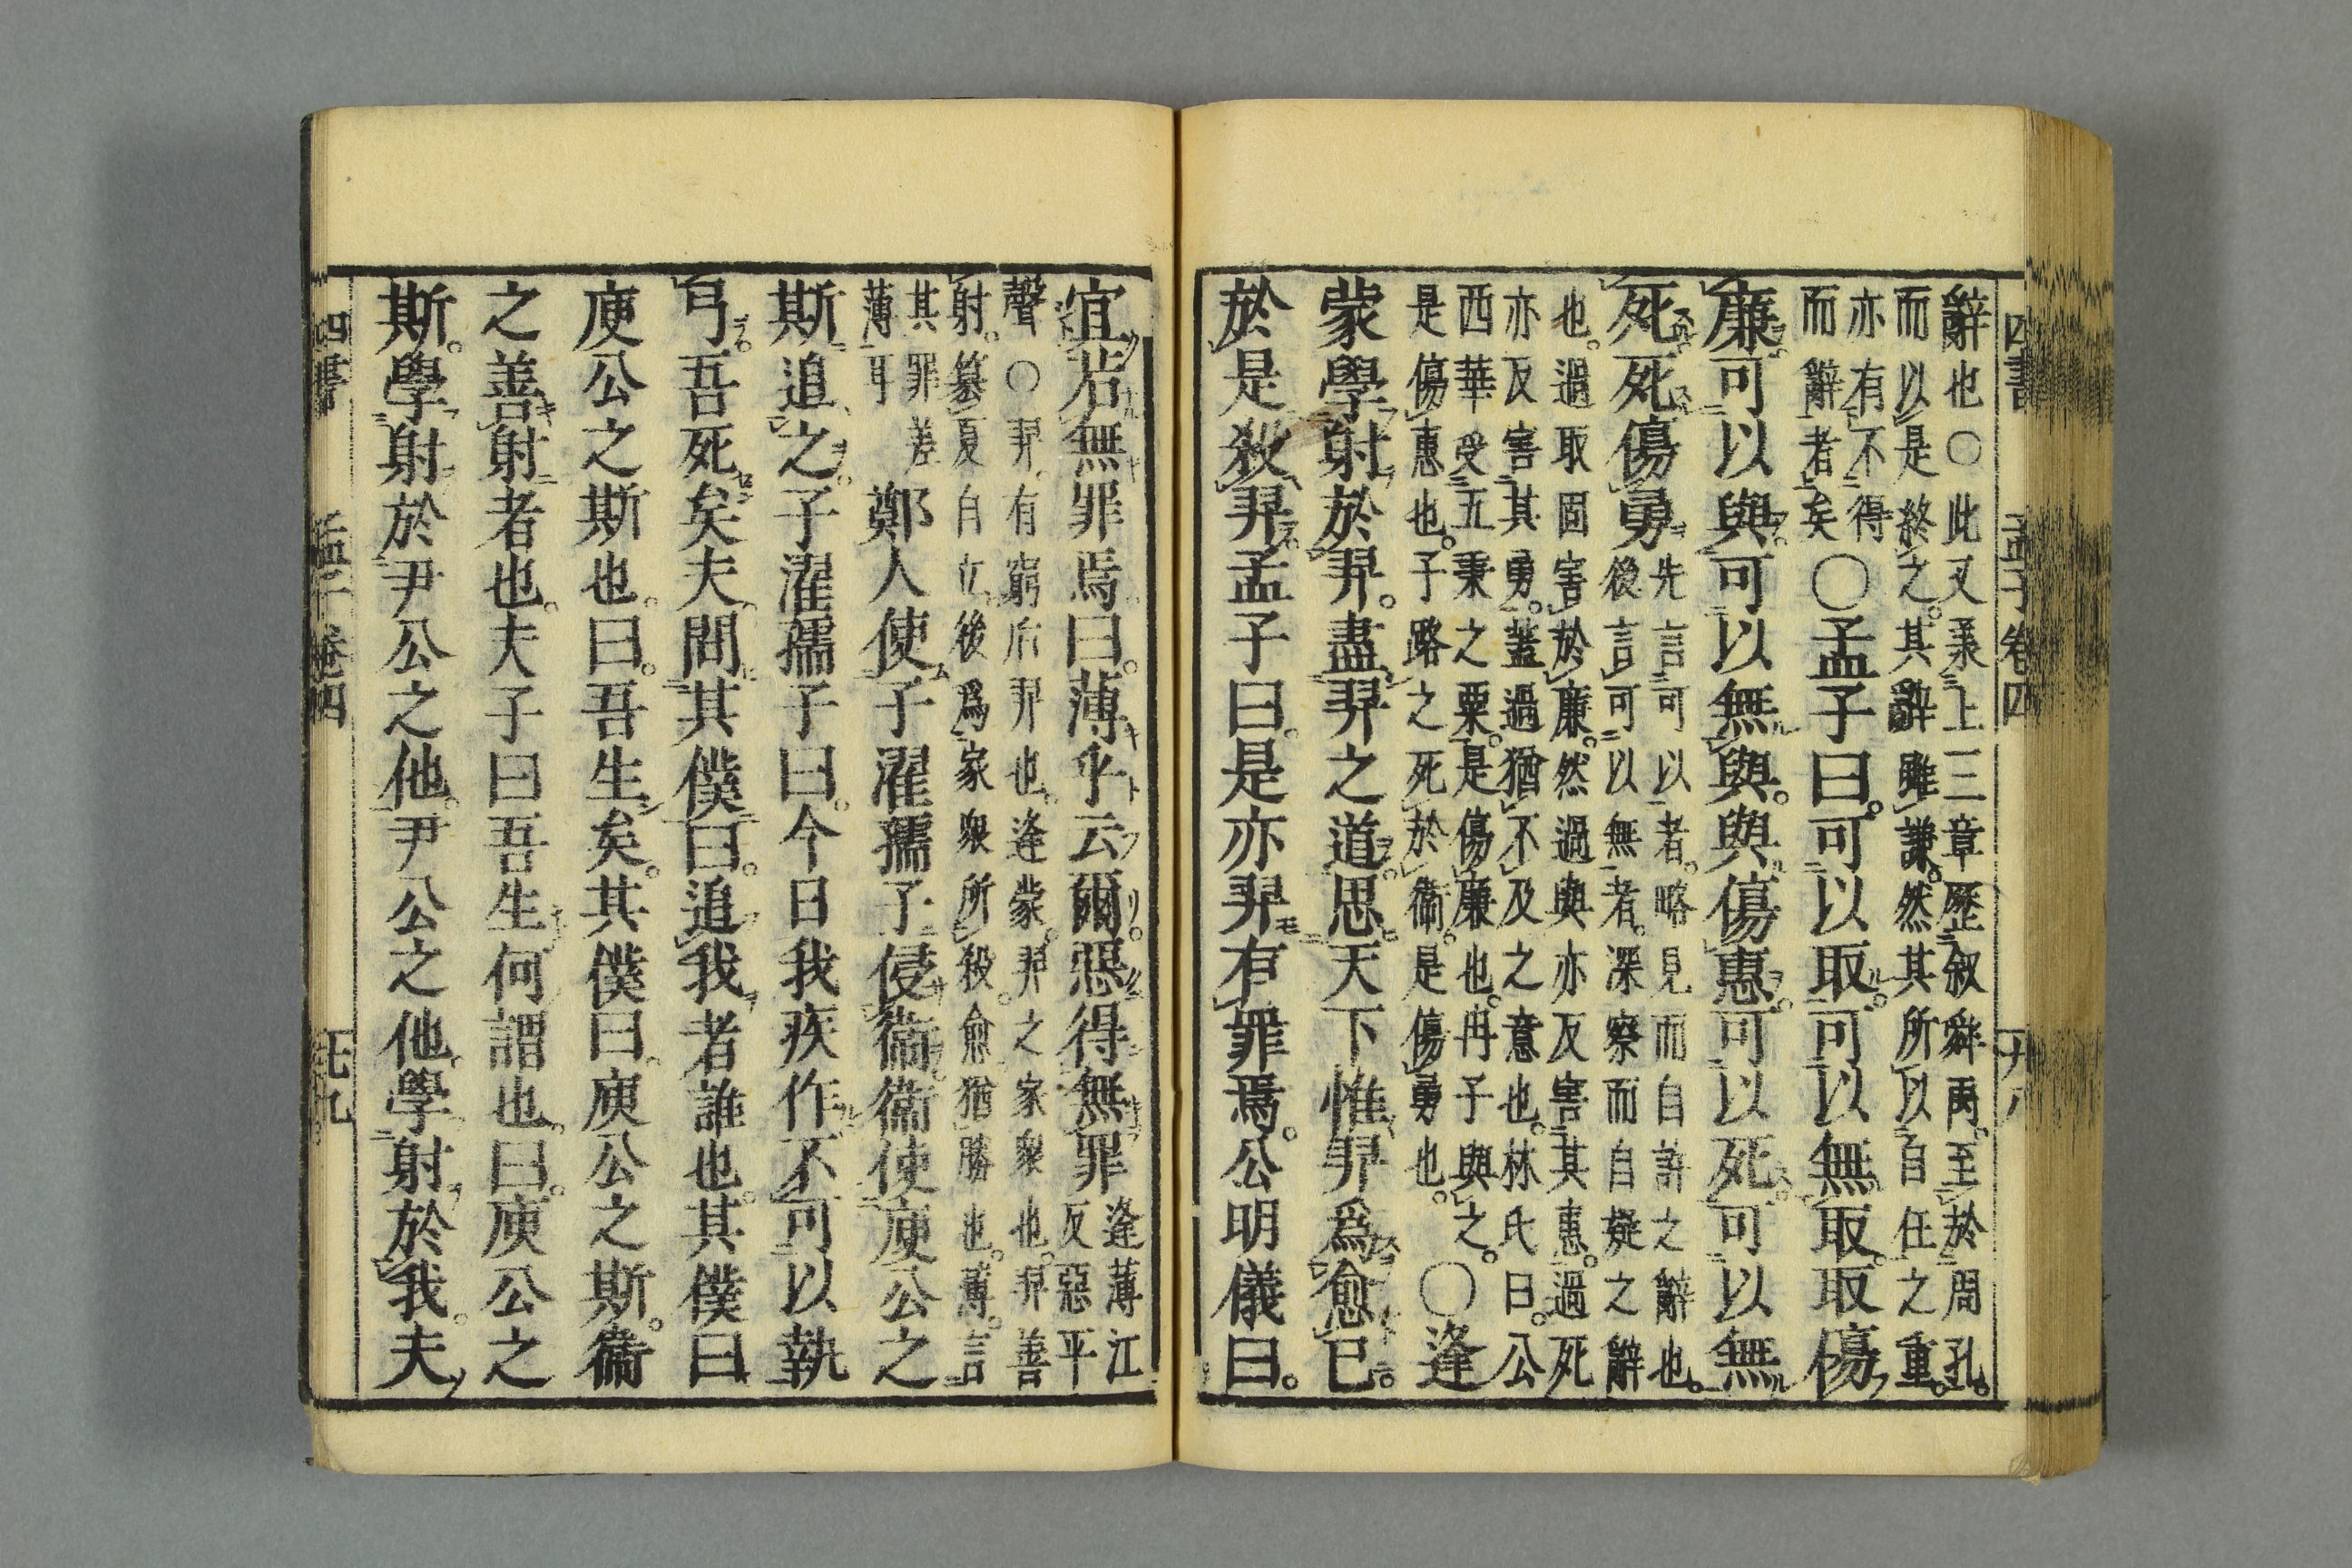 四書 孟子卷四
辭也○此又承上三章歷叙舜禹。至於周孔。
而以是終之。其辭雖謙。然其所以自任之重。
亦有不得
而辭者矣
○孟子曰。可以取。可以無取。取傷
廉。可以與。可以無與。與傷惠。可以死。可以無
死。死傷勇
先言可以者。略見而自許之辭也。
後言可以無者。深察而自疑之辭
也。過取固害於廉。然過與亦反害其惠。過死
亦反害其勇。蓋過猶不及之意也。林氏曰。公
西華受五秉之粟。是傷廉也。冉子與之。
是傷惠也。子路之死於衛。是傷勇也。
○逢
蒙學射於羿。盡羿之道。思天下惟羿爲愈己。
於是殺羿孟子曰。是亦羿有罪焉。公明儀曰。
宜若無罪焉。曰。薄乎云爾。惡得無罪
逢薄江
反惡平
聲○羿有窮后羿也。逢蒙。羿之家衆也。羿善
射。篡夏自立。後爲家衆所殺。愈猶勝也。薄。言
其罪差
薄耳
鄭人使子濯孺子侵衛。衛使庾公之
斯追之。子濯孺子曰。今日我疾作。不可以執
弓。吾死矣夫。問其僕曰。追我者誰也。其僕曰
庾公之斯也。曰。吾生矣。其僕曰。庾公之斯。衛
之善射者也。夫子曰吾生何謂也。曰。庾公之
斯。學射於尹公之他。尹公之他。學射於我。夫
四書 孟子卷四